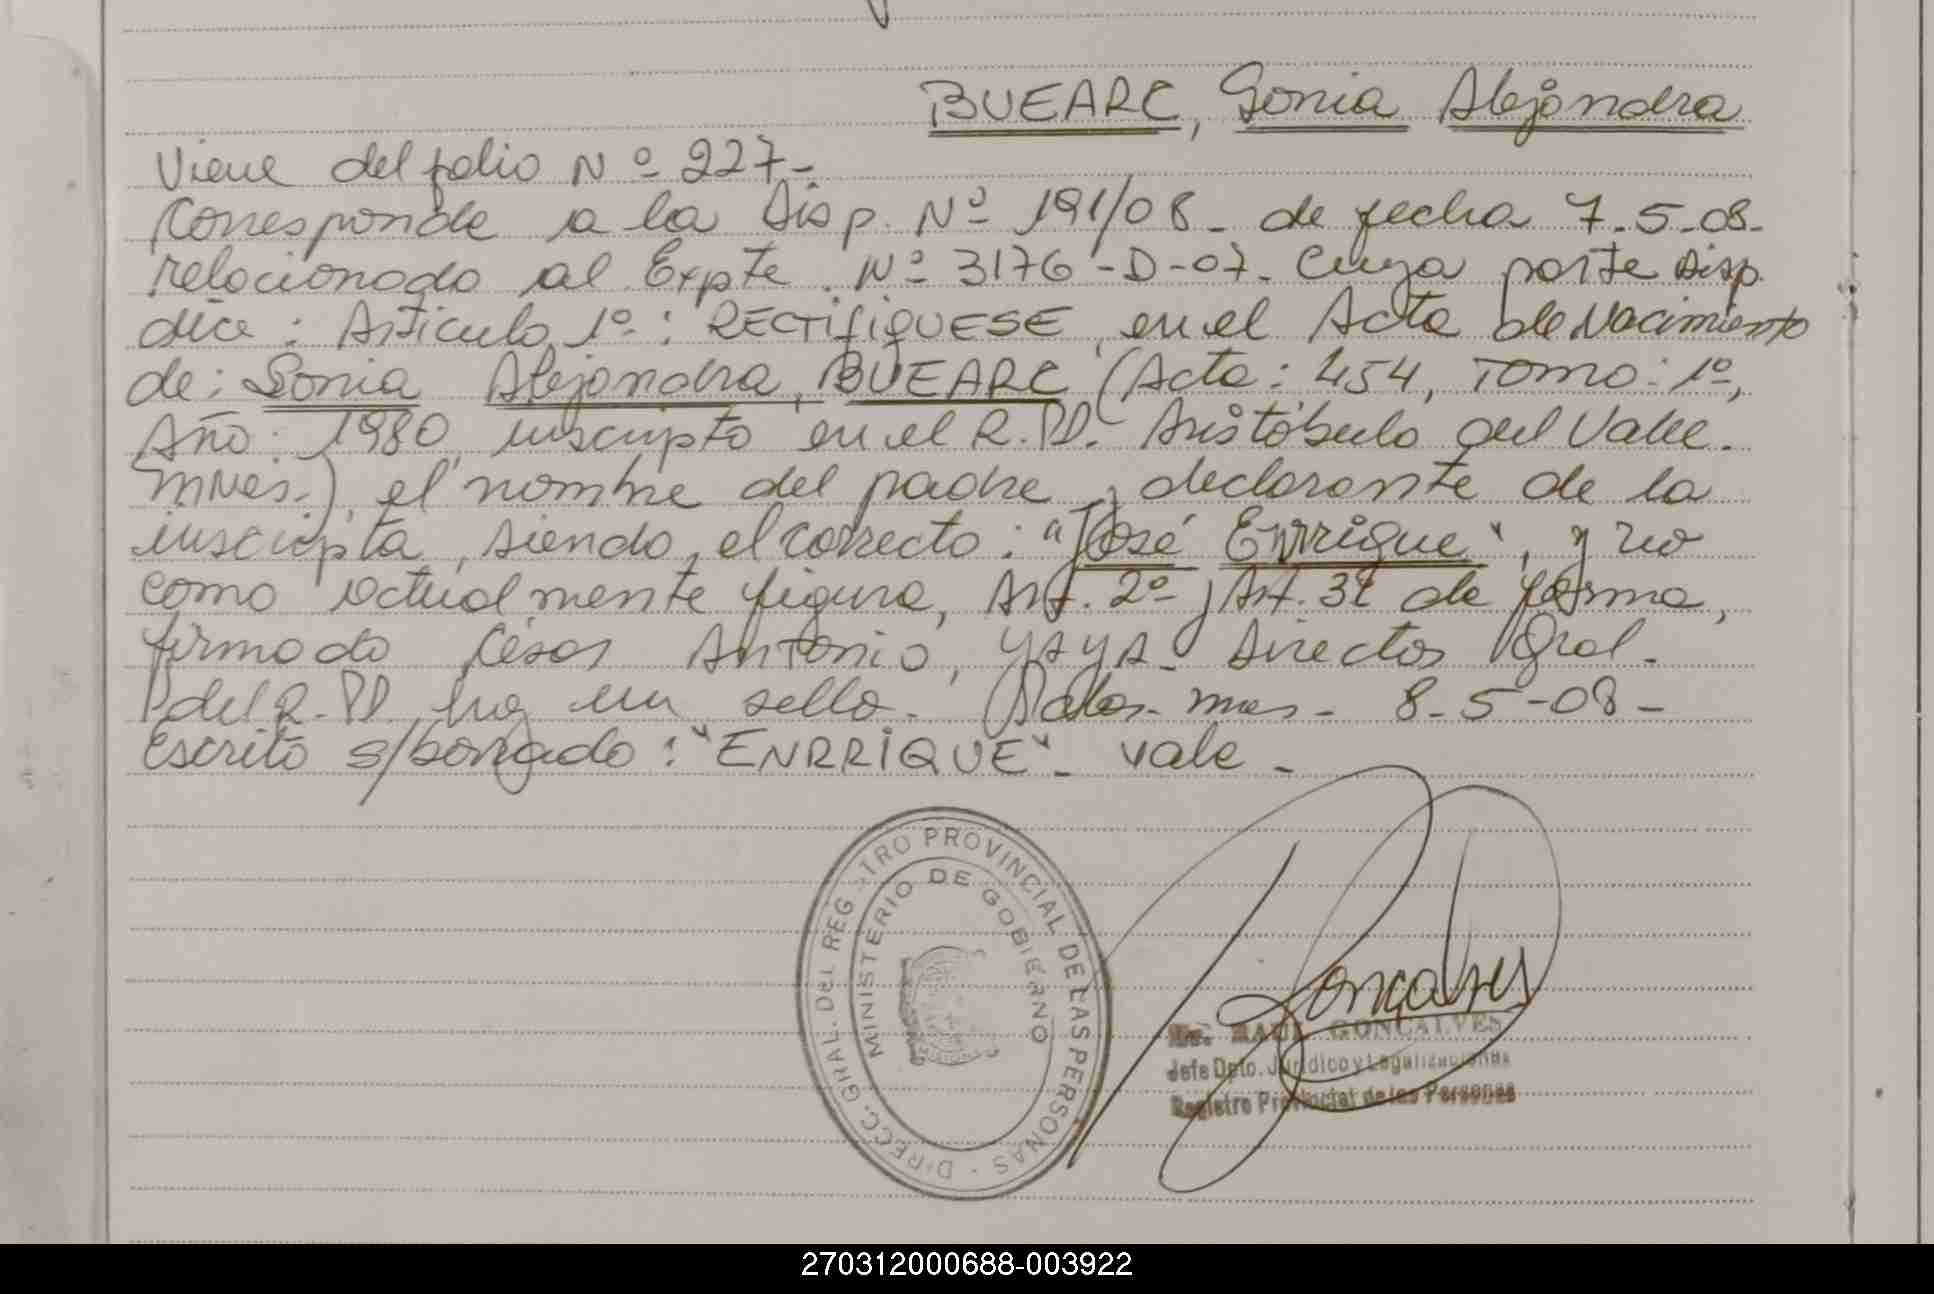 BUEARC, Sonia Alejandra
Viene del folio Nº 227-
Corresponde a la Disp. Nº 191/08- de fecha 7-5-08-
relacionado al Expte. Nº 3176-D-07- Cuya parte Disp.
dice: Artículo 1º: RECTIFIQUESE, en el Acta de Nacimiento
de: Sonia Alejandra, BUEARC (Acta: 454, Tomo: 1º,
Año: 1980, inscripto en el R.PP. Aristóbulo del Valle.
Mnes.), el nombre del padre y declarante de la
inscripta, siendo, el correcto: "José Enrrique", y no
como actualmente figura, Art. 2º y Art. 3º de forma,
firmado César Antonio, YAYA- Director Gral.
del R.PP. hay un sello. Pdas. mnes- 8-5-08-
Escrito s/borrado: "ENRRIQUE"- vale-
DIRECC. GRAL. DEL REGISTRO PROVINCIAL DE LAS PERSONAS
MINISTERIO DE GOBIERNO
Gonçalves
RAUL GONCALVES
Jefe Dpto. Jurídico y Legalizaciones
Registro Provincial de las Personas
270312000688-003922